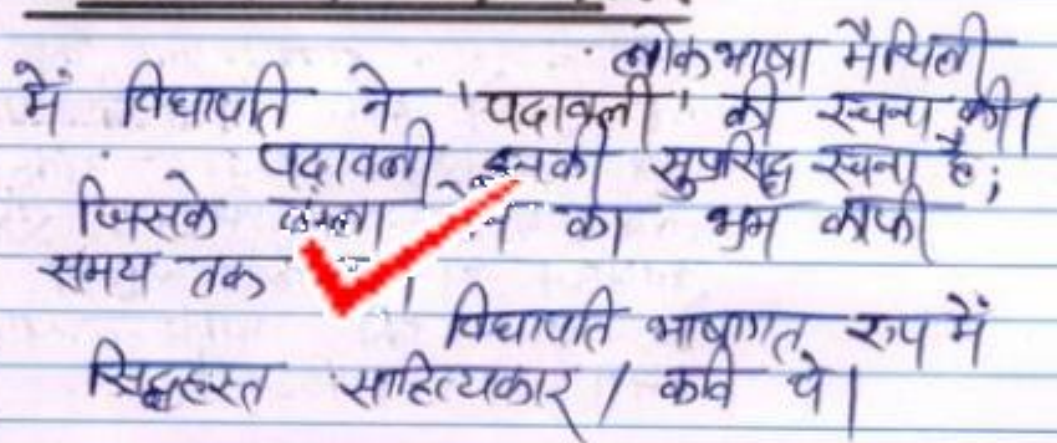 लोकभाषा मैथिली
में विद्यापति ने 'पदावली' की रचना की।
पदावली इनकी सुप्रसिद्ध रचना है;
जिसके का भ्रम काफी
समय तक ।
विद्यापति भाषागत रूप में
सिद्धहस्त साहित्यकार / कवि थे।